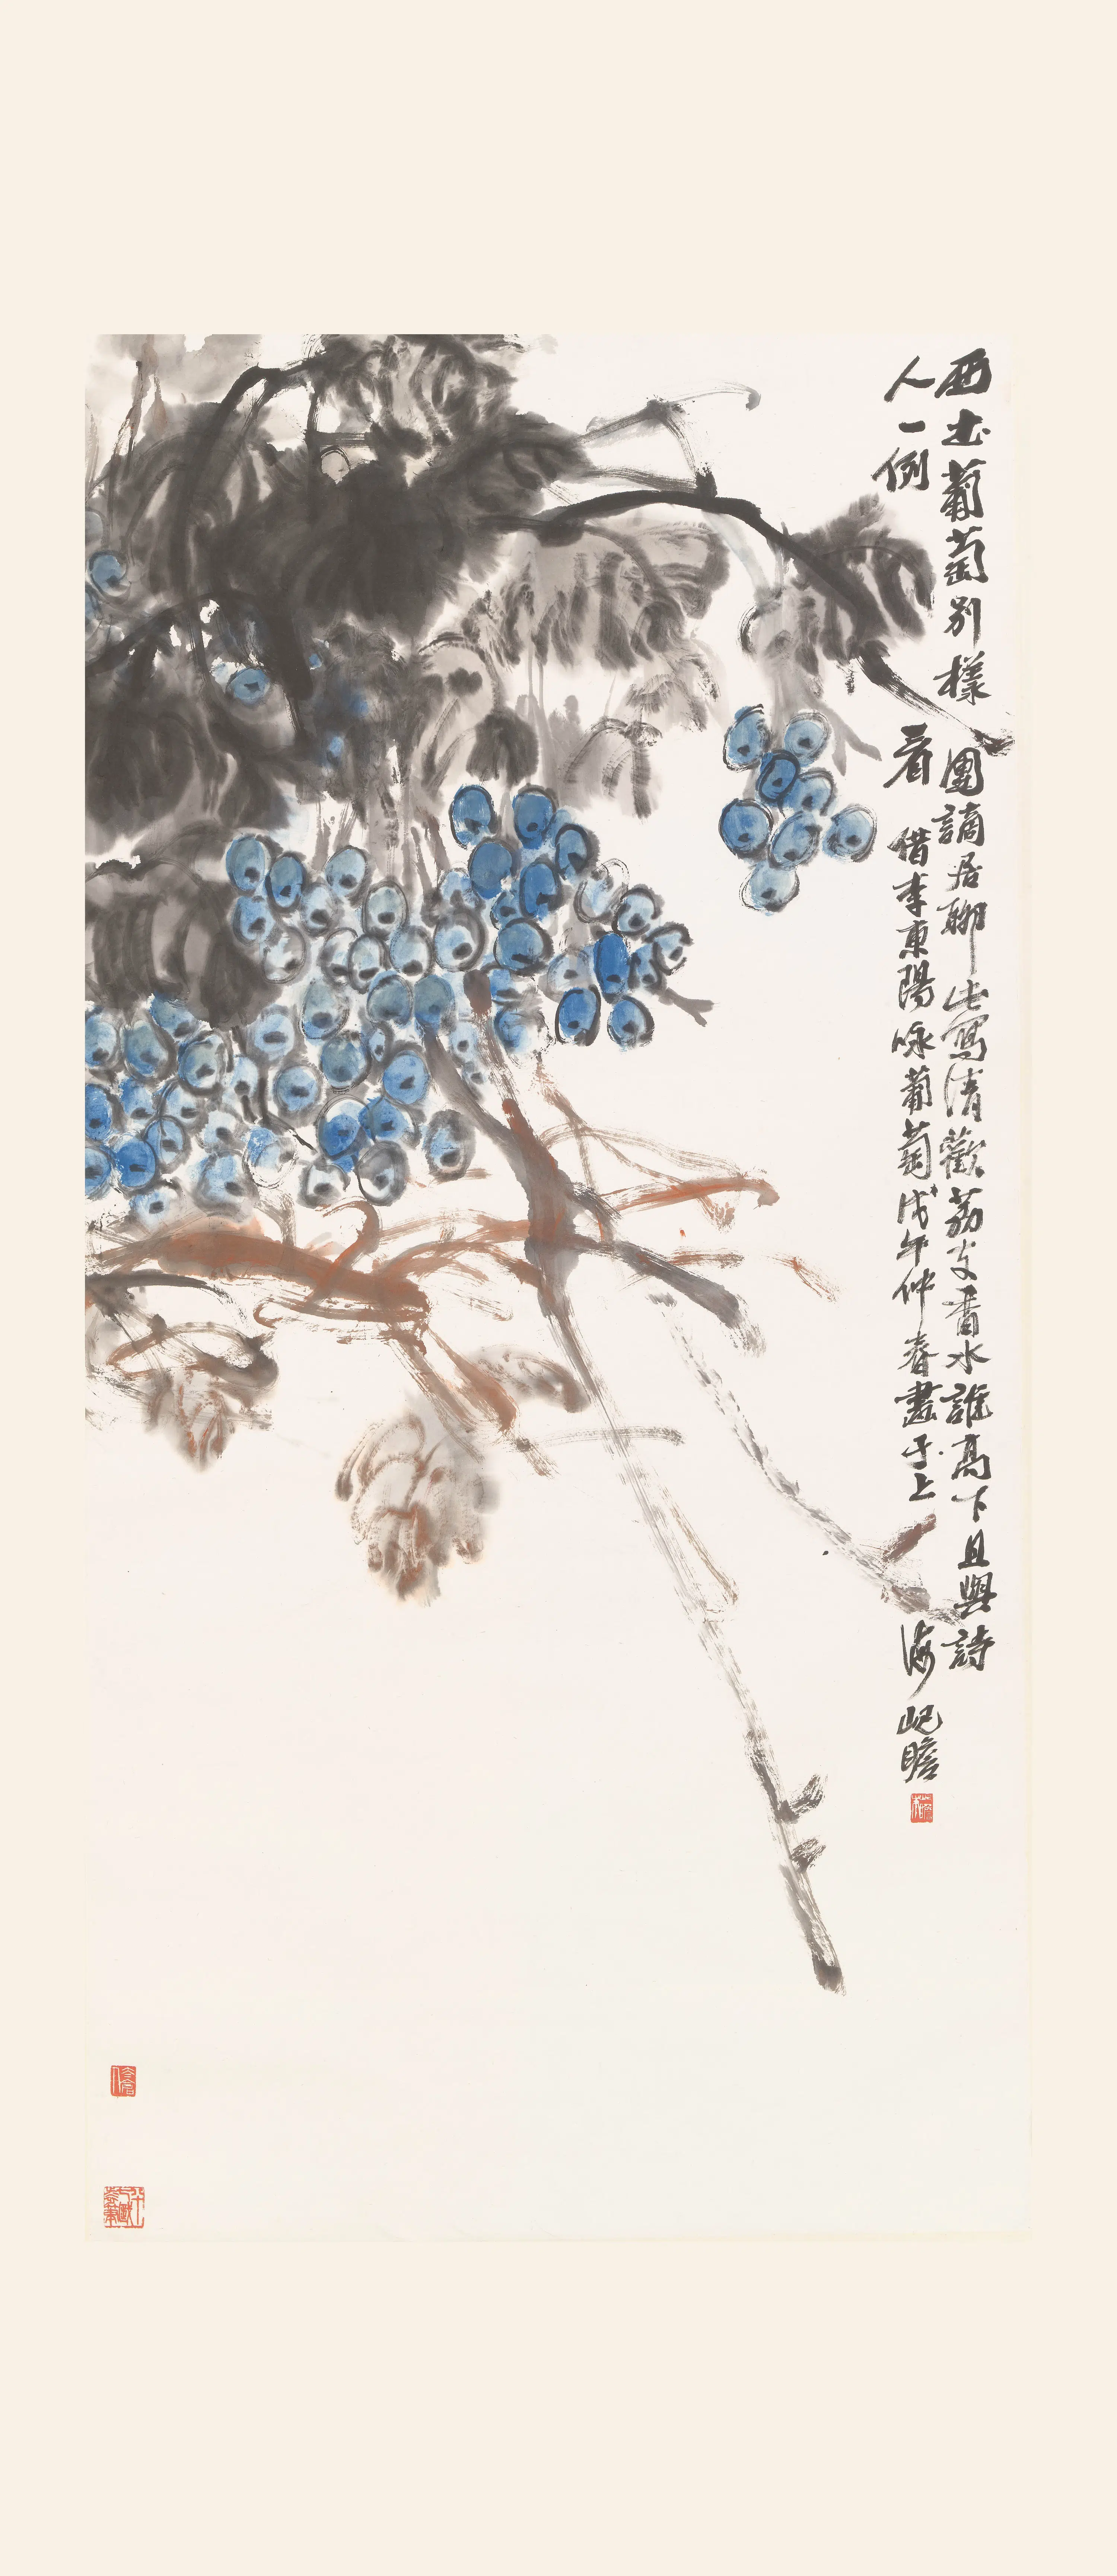 西土葡萄別樣團謫居聊此寫清歡荔支香水誰高下且與詩
人一例看借李東陽咏葡萄戊午仲春畫于上海屺瞻